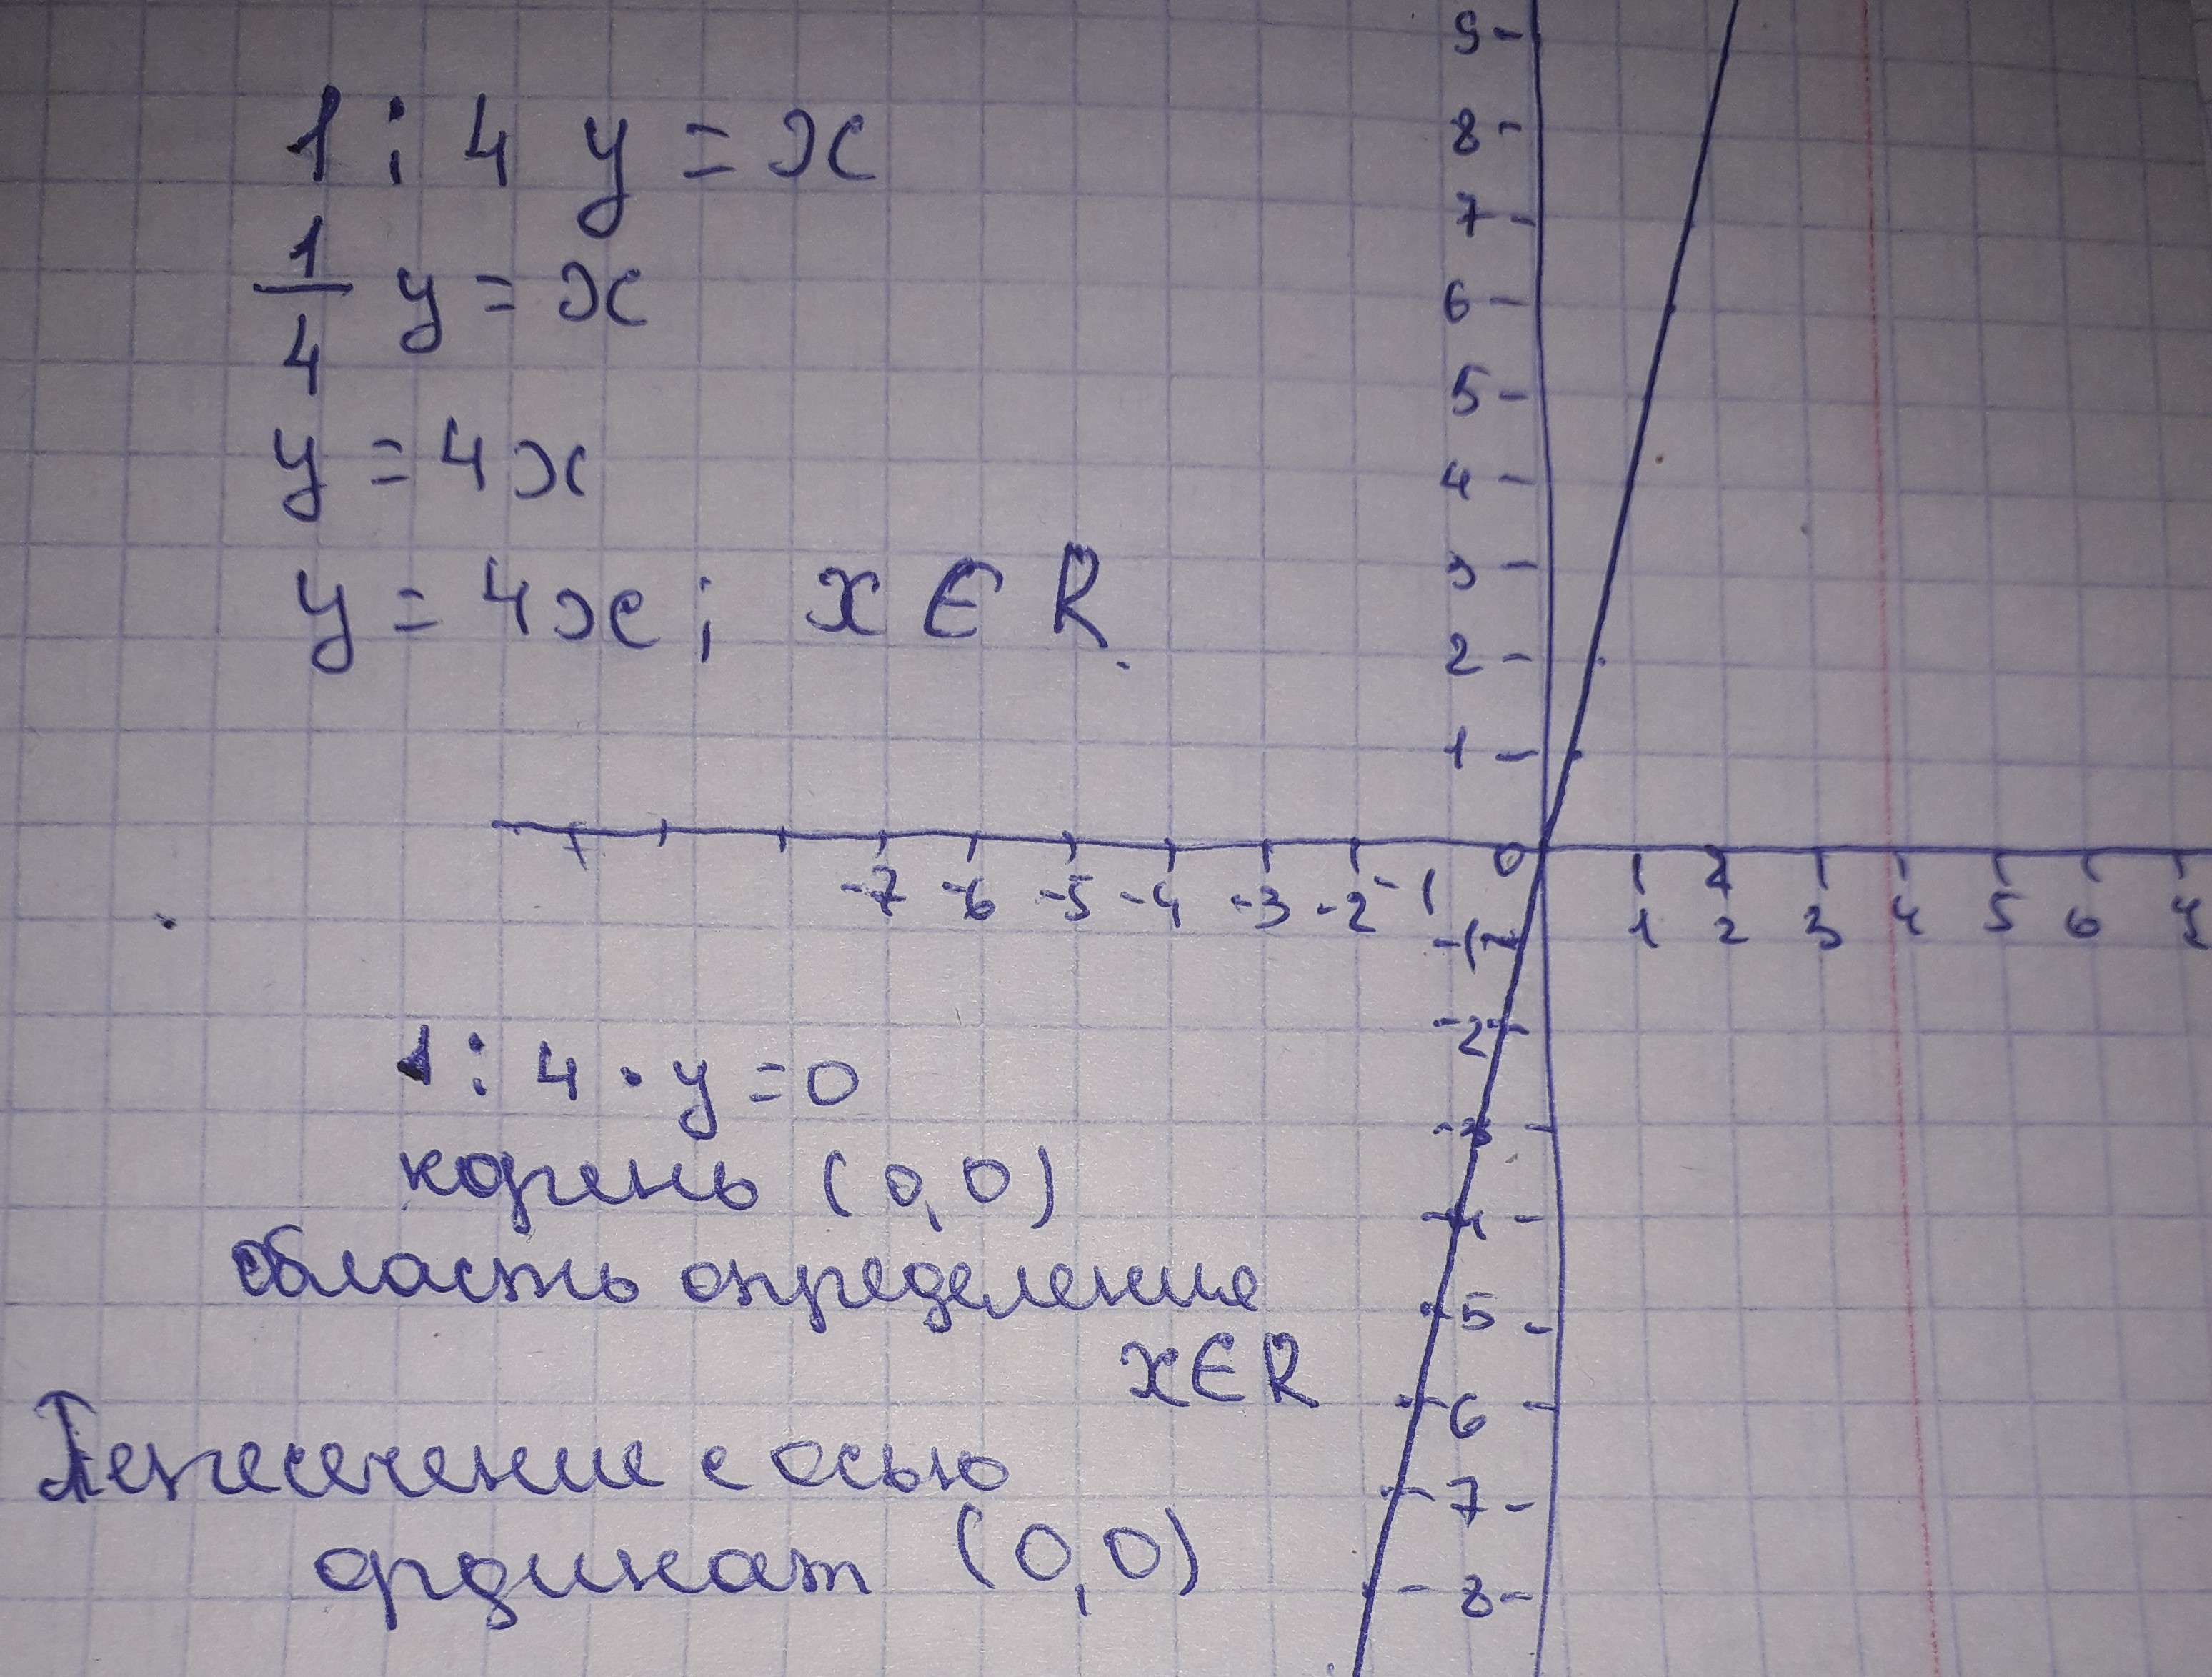 1 : 4 y = x
1/4 y = x
y = 4x
y = 4x ; x ∈ R.
9
8
7
6
5
4
3
2
1
-7 -6 -5 -4 -3 -2 -1 0 1 2 3 4 5 6 7
-1
-2
-3
-4
-5
-6
-7
-8
1 : 4 · y = 0
корень (0,0)
область определение
x ∈ R
Пересечение с осью
ординат (0,0)